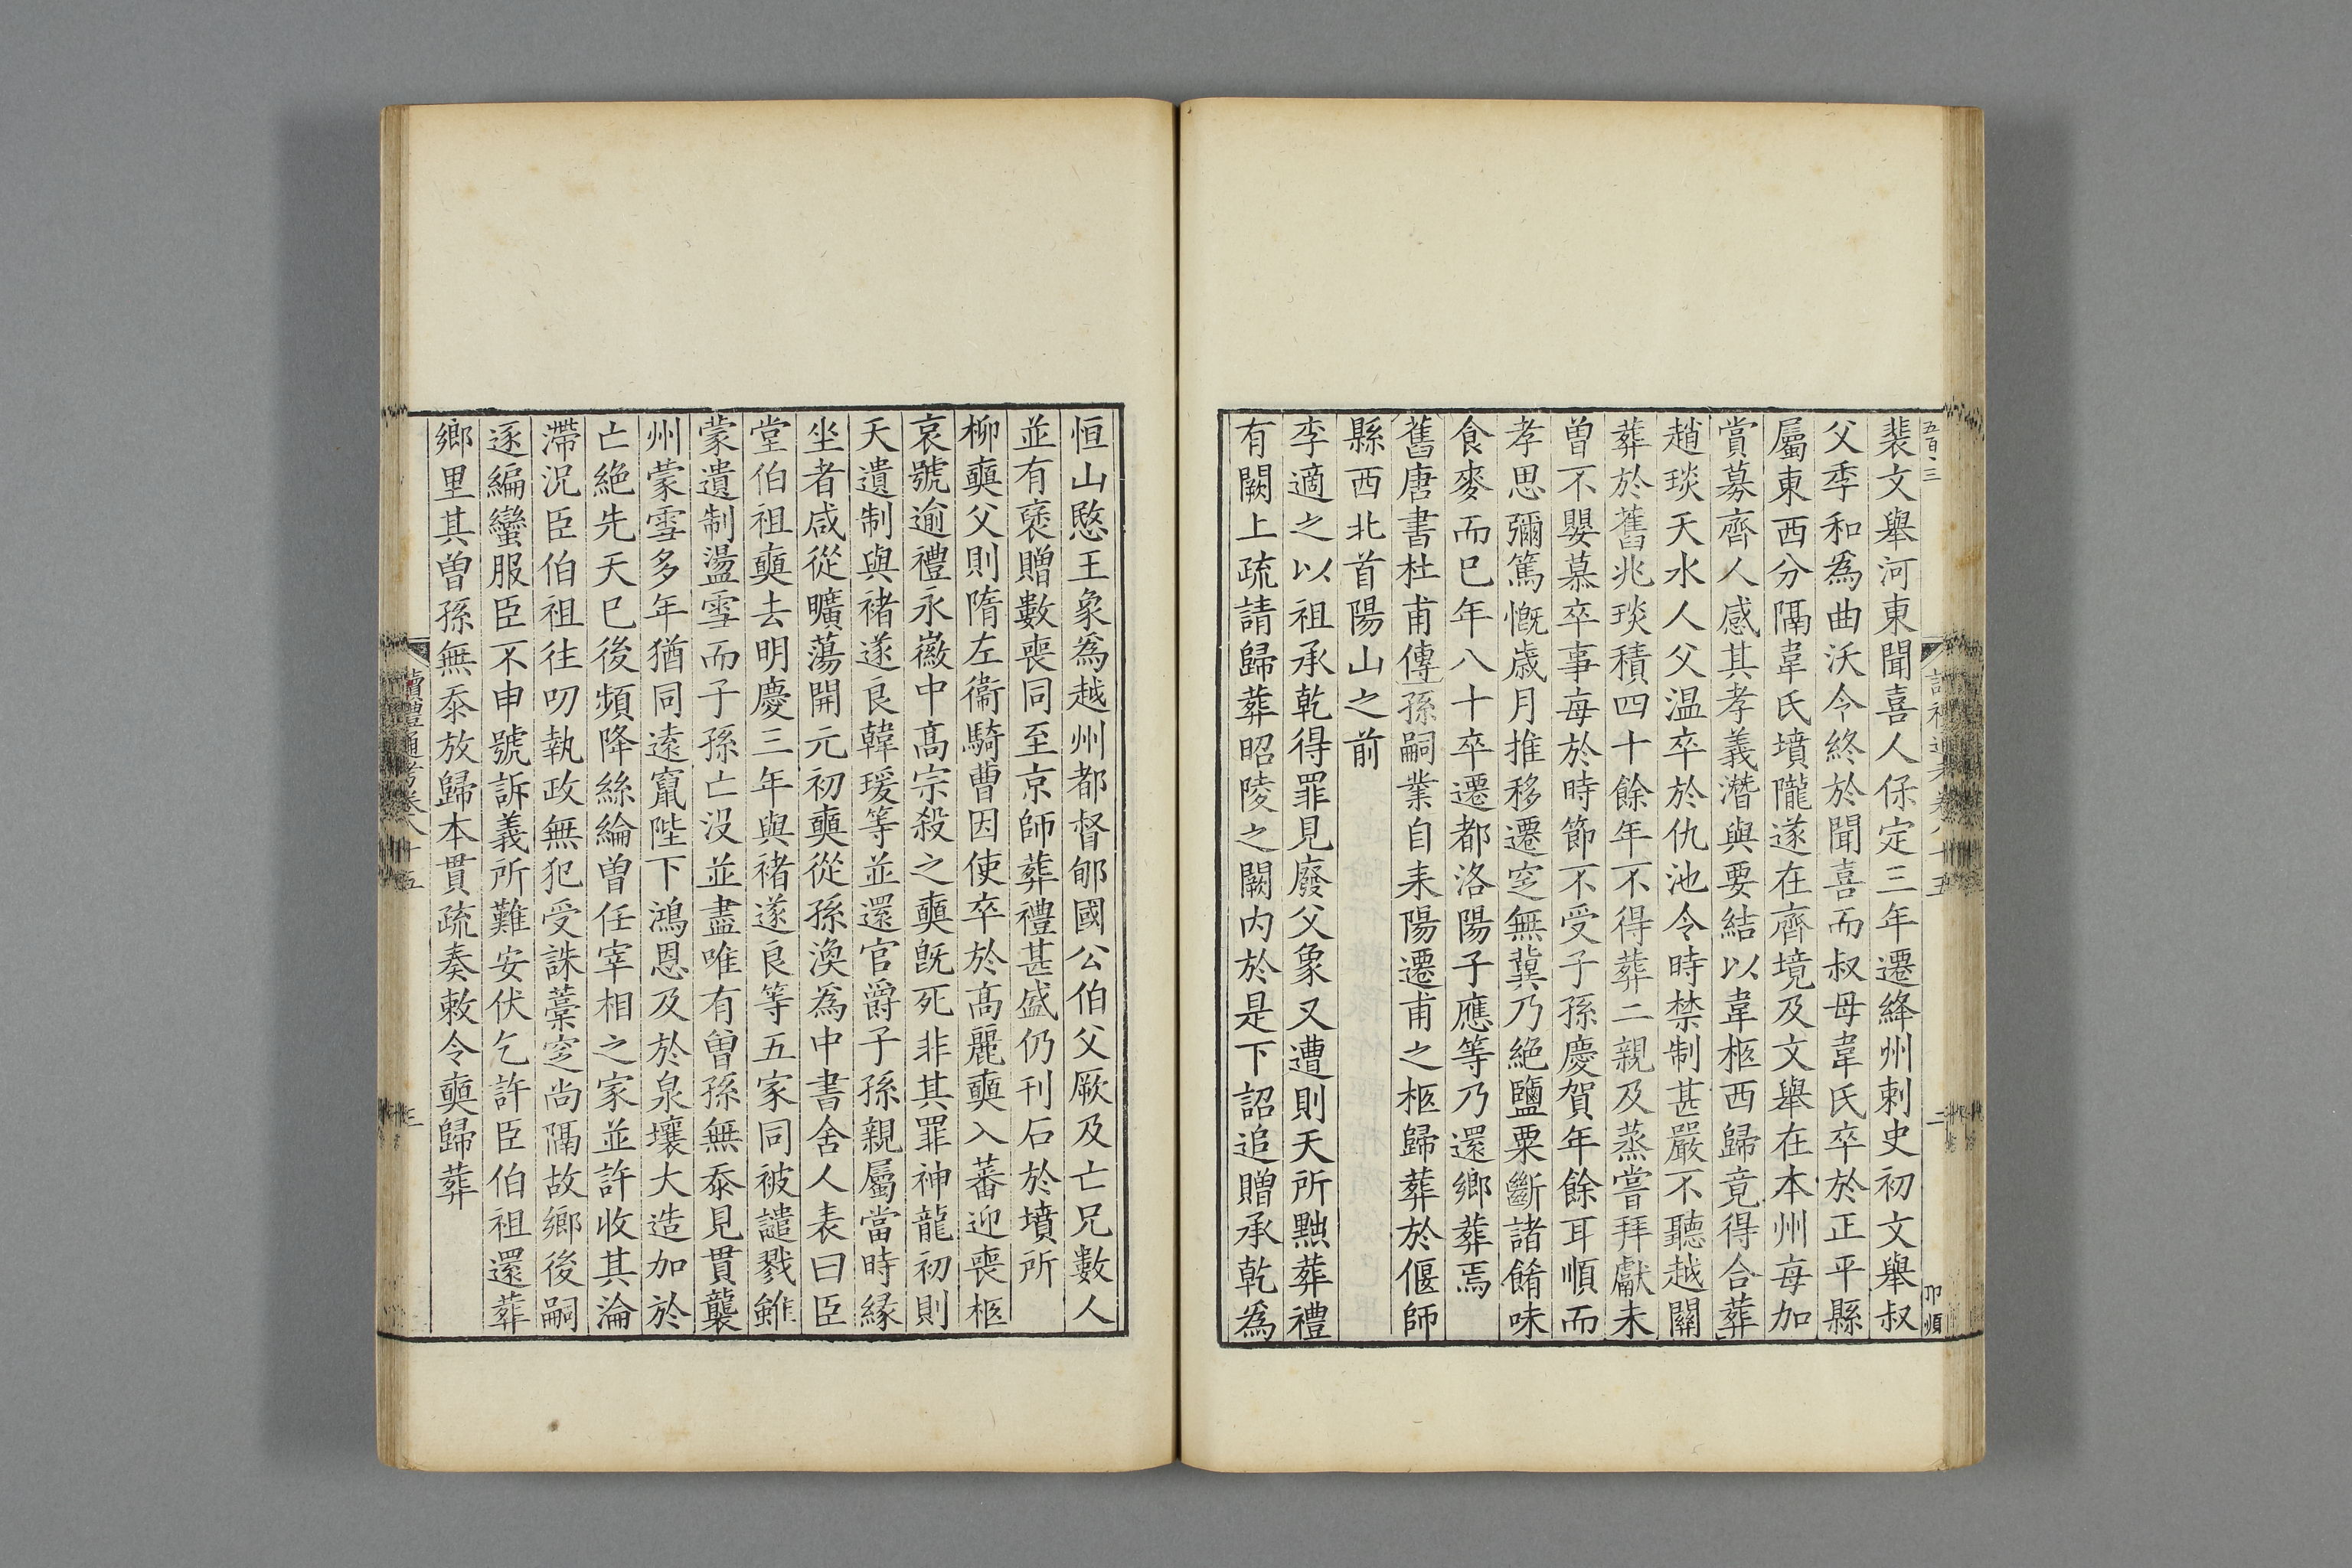 五百三
裴文舉河東聞喜人保定三年遷絳州刺史初文舉叔
父季和為曲沃令終於聞喜而叔母韋氏卒於正平縣
屬東西分隔韋氏墳隴遂在齊境及文舉在本州每加
賞募齊人感其孝義潛與要結以韋柩西歸竟得合葬
趙琰天水人父温卒於仇池令時禁制甚嚴不聽越關
葬於舊兆琰積四十餘年不得葬二親及蒸嘗拜獻未
曽不嬰慕卒事每於時節不受子孫慶賀年餘耳順而
孝思彌篤慨歳月推移遷窆無冀乃絶鹽粟斷諸餚味
食麥而已年八十卒遷都洛陽子應等乃還鄉葬焉
舊唐書杜甫傳孫嗣業自耒陽遷甫之柩歸葬於偃師
縣西北首陽山之前
李適之以祖承乾得罪見廢父象又遭則天所黜葬禮
有闕上疏請歸葬昭陵之闕内於是下詔追贈承乾為
二
卬順
恒山愍王象為越州都督郇國公伯父厥及亡兄數人
並有襃贈數喪同至京師葬禮甚盛仍刊石於墳所
柳奭父則隋左衞騎曹因使卒於髙麗奭入蕃迎喪柩
哀號逾禮永徽中髙宗殺之奭旣死非其罪神龍初則
天遺制與褚遂良韓瑗等並還官爵子孫親屬當時縁
坐者咸從曠蕩開元初奭從孫渙為中書舍人表曰臣
堂伯祖奭去明慶三年與褚遂良等五家同被譴戮雖
蒙遺制盪雪而子孫亡没並盡唯有曾孫無忝見貫襲
州蒙雪多年猶同逺竄陛下鴻恩及於泉壤大造加於
亡絶先天已後頻降絲綸曽任宰相之家並許收其淪
滯況臣伯祖往叨執政無犯受誅藁窆尚隔故鄉後嗣
逐編蠻服臣不申號訴義所難安伏乞許臣伯祖還葬
鄉里其曽孫無忝放歸本貫疏奏敕令奭歸葬
讀禮通考卷八十五
三